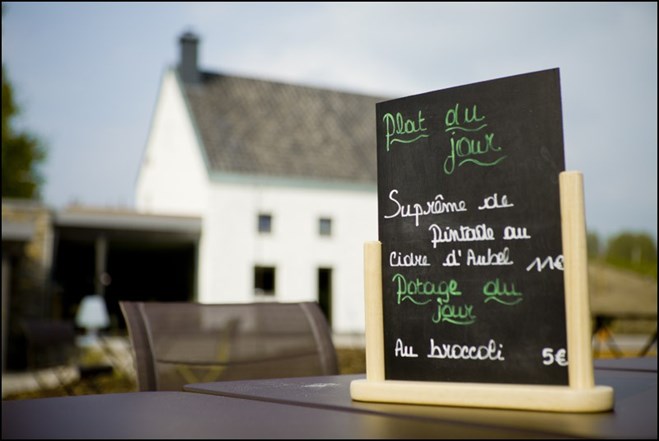 Plat du
jour
Suprême de
pintade au
Cidre d'Aubel 11€
Potage du
jour
Au broccoli 5€